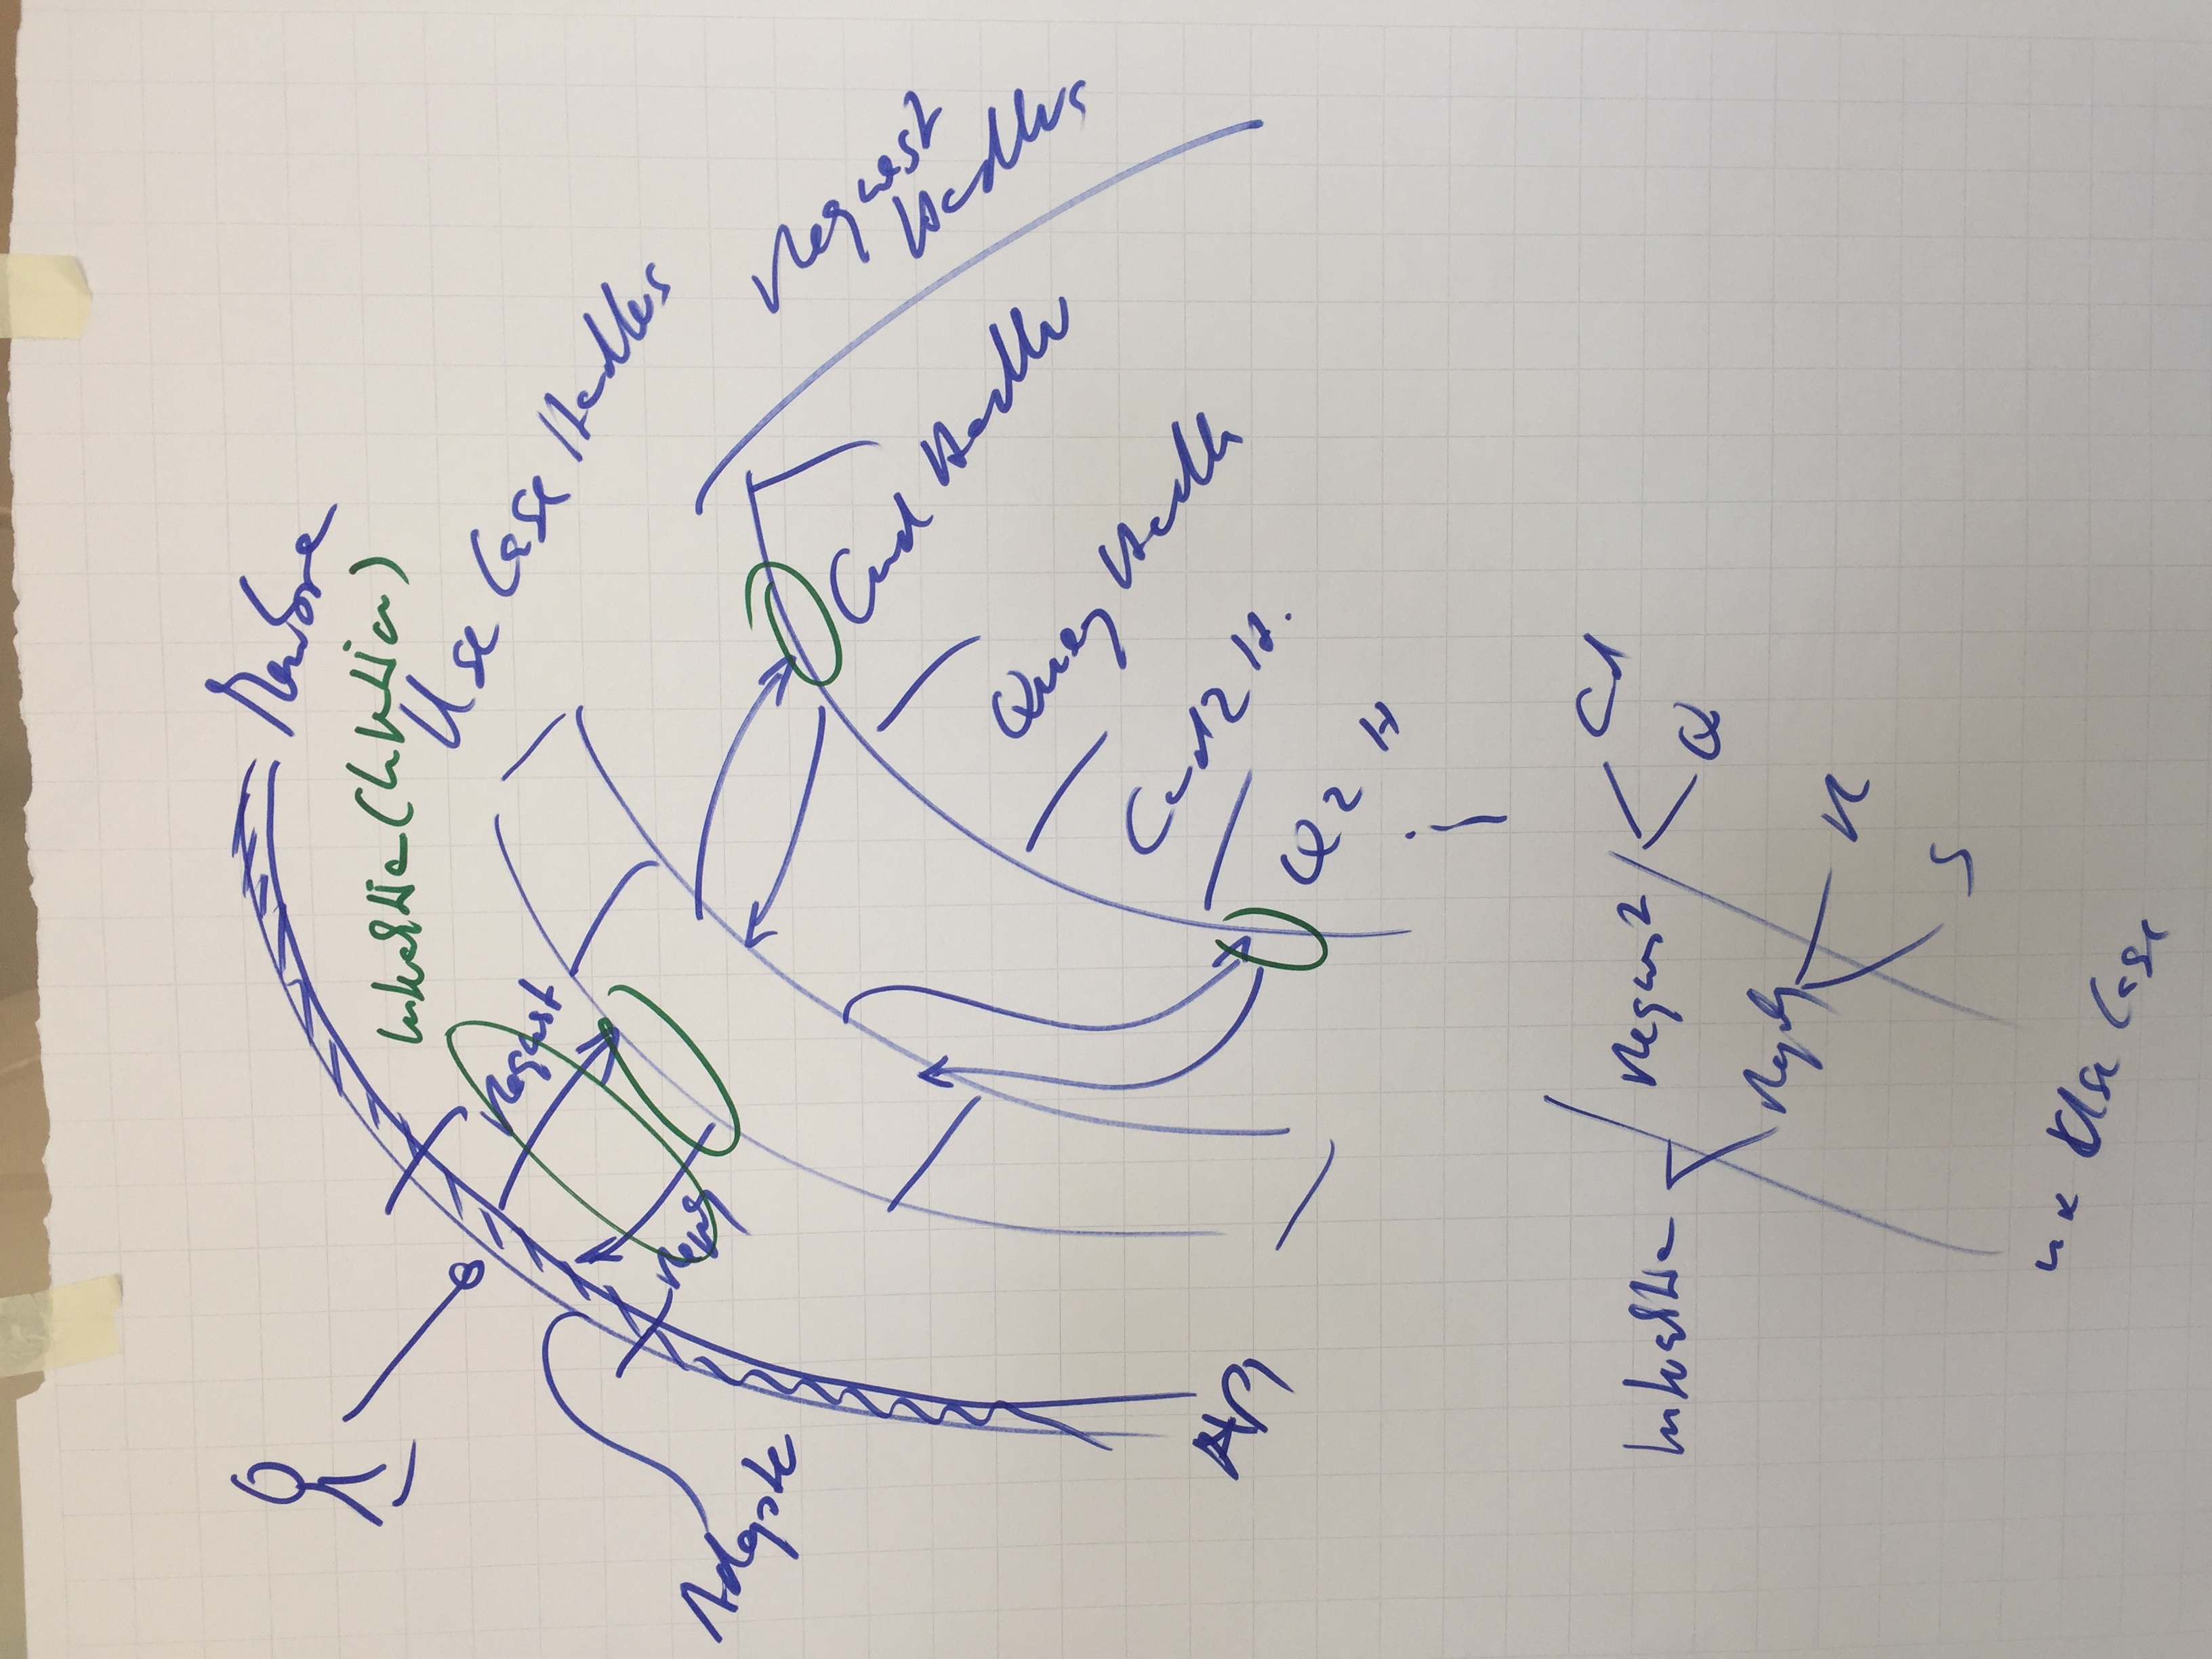 Membrane
Interaktion (Funktion)
Use Case Handlers
Request
Reply
Adapter
API
Request
Handlers
Cmd Handler
Query Handler
Cmd2 H.
Q2 H
Interaktion
Request
Cd
Q
Reply
R
S
n x Use Case